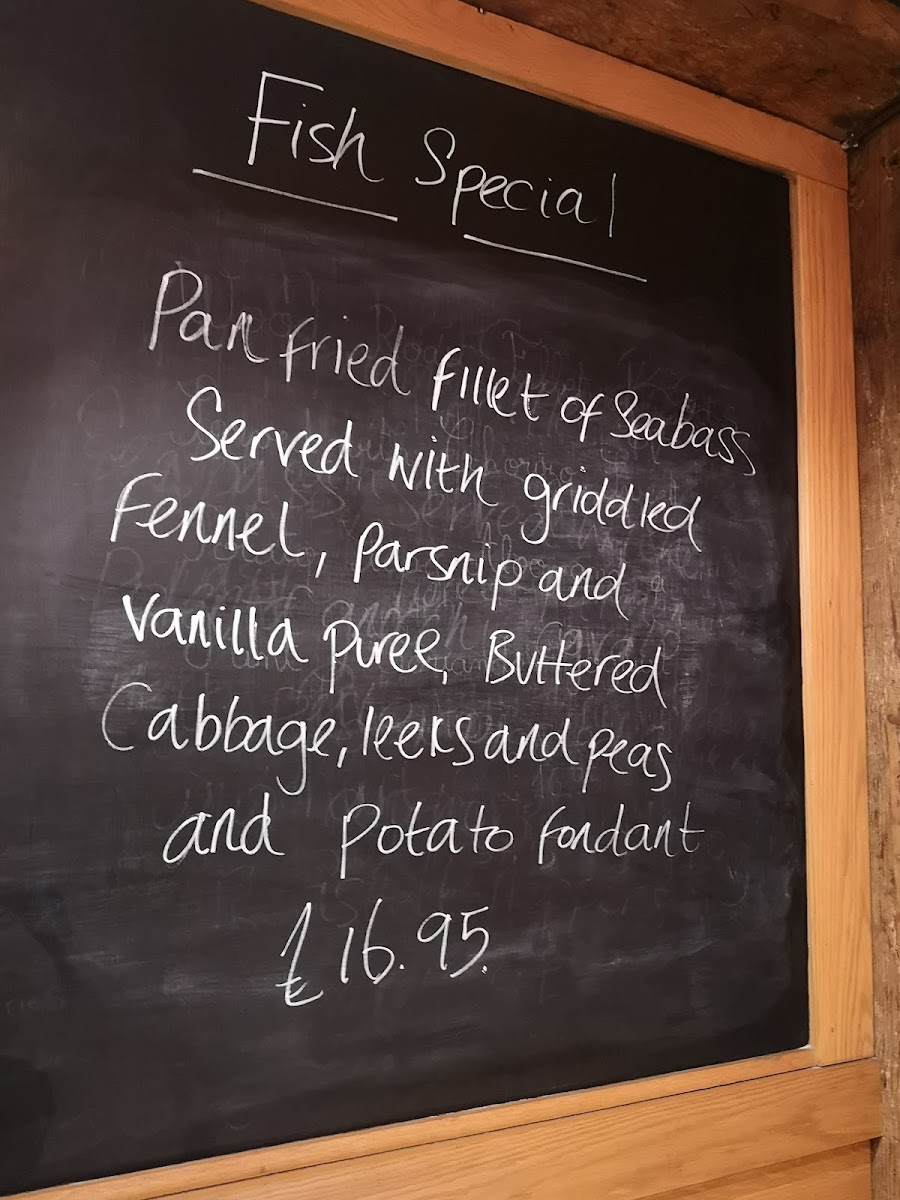 Fish Special
Pan fried fillet of Seabass
Served with griddled
Fennel, Parsnip and
Vanilla puree, Buttered
Cabbage, leeks and peas
and Potato fondant
£16.95.